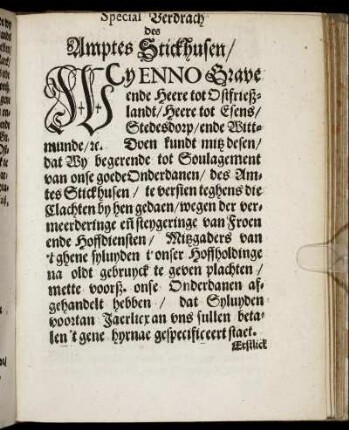 Special Verdrach
des
Amptes Stickhusen/
WY ENNO Grave
ende Heere tot Ostfrieß-
landt/ Heere tot Esens/
Stedesdorp/ ende Witt-
munde/ ꝛc. Doen kundt mitz desen/
dat Wy begerende tot Soulagement
van onse goede Onderdanen/ des Am-
tes Stickhusen/ te versien teghens die
Clachten by hen gedaen/ wegen der ver-
meerderinge eñ steygeringe van Froen
ende Hoffdiensten/ Mitzgaders van
't ghene syluyden t'onser Hoffholdinge
na oldt gebruyck te geven plachten/
mette voorß. onse Onderdanen af-
gehandelt hebben/ dat Syluyden
voortan Jaerlicx an vns sullen beta-
len 't gene hyrnae gespecificeert staet.
Erstlick